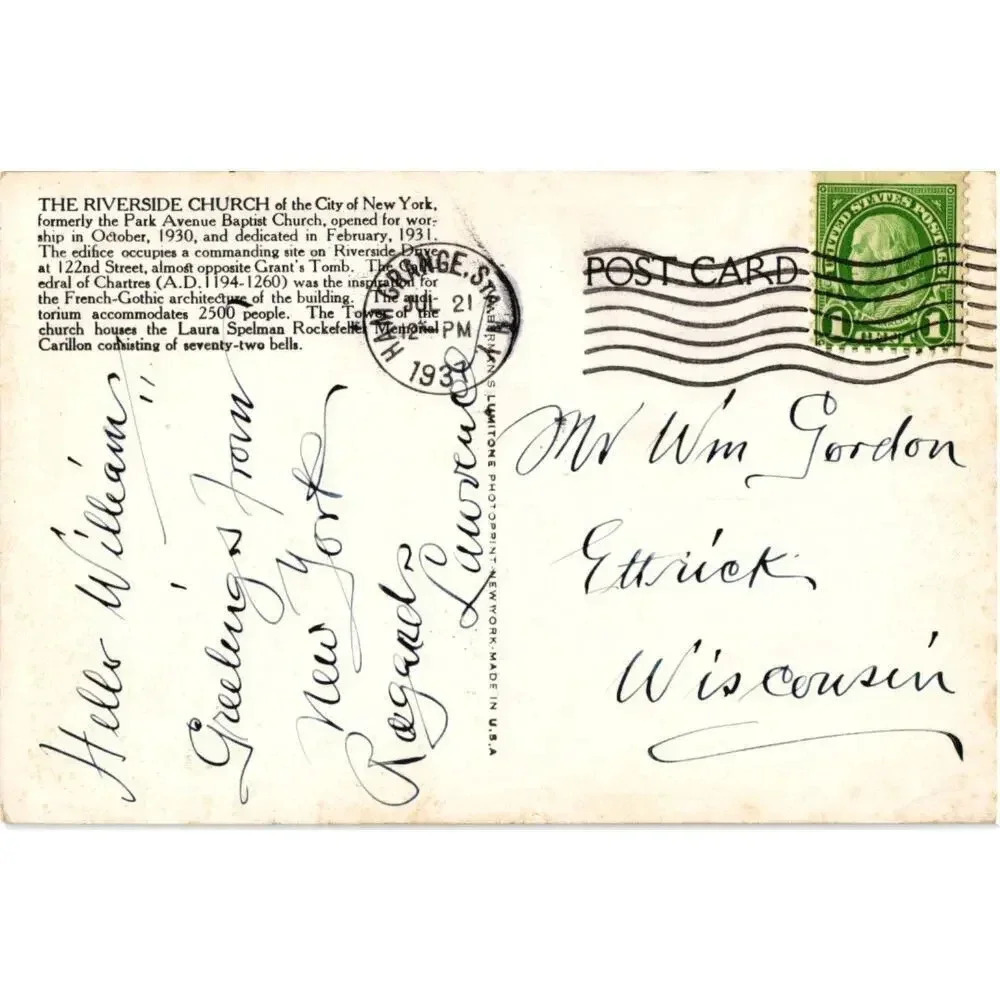 THE RIVERSIDE CHURCH of the City of New York,
formerly the Park Avenue Baptist Church, opened for wor-
ship in October, 1930, and dedicated in February, 1931.
The edifice occupies a commanding site on Riverside Drive
at 122nd Street, almost opposite Grant's Tomb. The
edral of Chartres (A.D. 1194-1260) was the inspiration for
the French-Gothic architecture of the building. The audi-
torium accommodates 2500 people. The Tower of the
church houses the Laura Spelman Rockefeller Memorial
Carillon consisting of seventy-two bells.
HAM. GRANGE. STA. N.Y.
JUL 21
12 PM
193
POST CARD
UNITED STATES POSTAGE
1 CENT 1
LUMITONE PHOTOPRINT-NEW YORK-MADE IN U.S.A
Hello William!!
Greetings from
New York
Regards
Lawrence
Mr Wm Gordon
Ettrick
Wisconsin